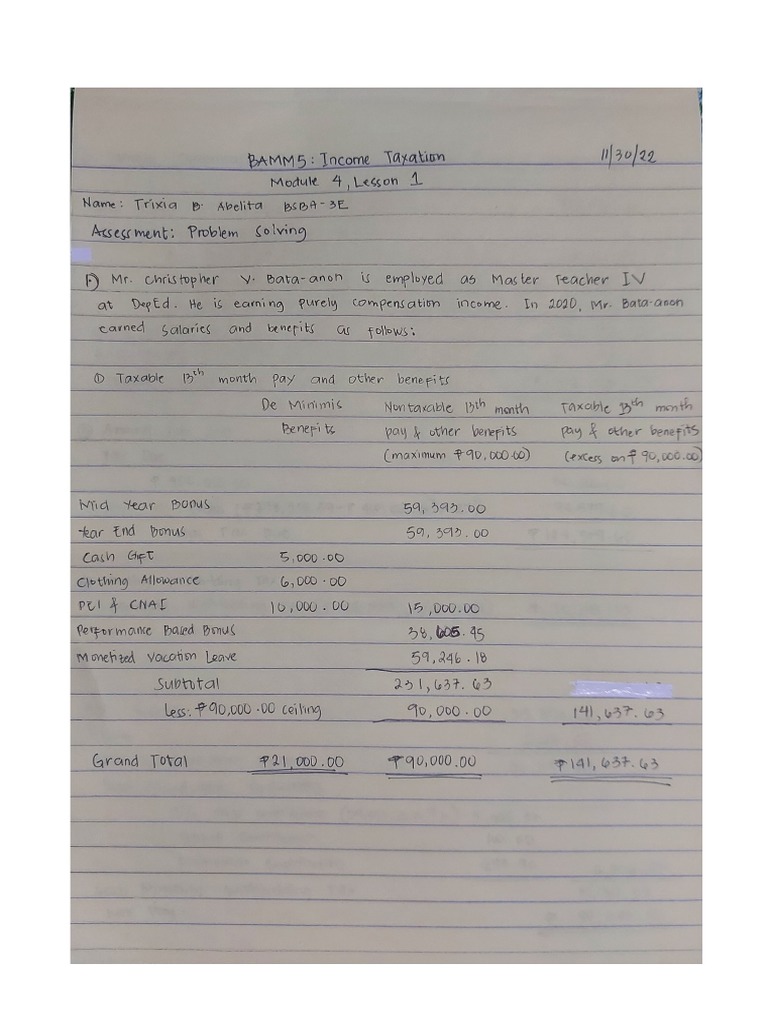 BAMM5: Income Taxation 11/30/22
Module 4, Lesson 1
Name: Trixia B. Abelita BSBA-3E
Assessment: Problem Solving
F) Mr. Christopher V. Bata-anon is employed as Master Teacher IV
at DepEd. He is earning purely compensation income. In 2020, Mr. Bata-anon
earned salaries and benefits as follows:
① Taxable 13th month pay and other benefits
De Minimis Nontaxable 13th month Taxable 13th month
Benefits pay & other benefits pay & other benefits
(maximum ₱90,000.00) (excess on ₱90,000.00)
Mid Year Bonus 59,393.00
Year End Bonus 59,393.00
Cash Gift 5,000.00
Clothing Allowance 6,000.00
PEI & CNAI 10,000.00 15,000.00
Performance Based Bonus 38,605.45
Monetized Vacation Leave 59,246.18
Subtotal 231,637.63
Less: ₱90,000.00 ceiling 90,000.00 141,637.63
Grand Total ₱21,000.00 ₱90,000.00 ₱141,637.63